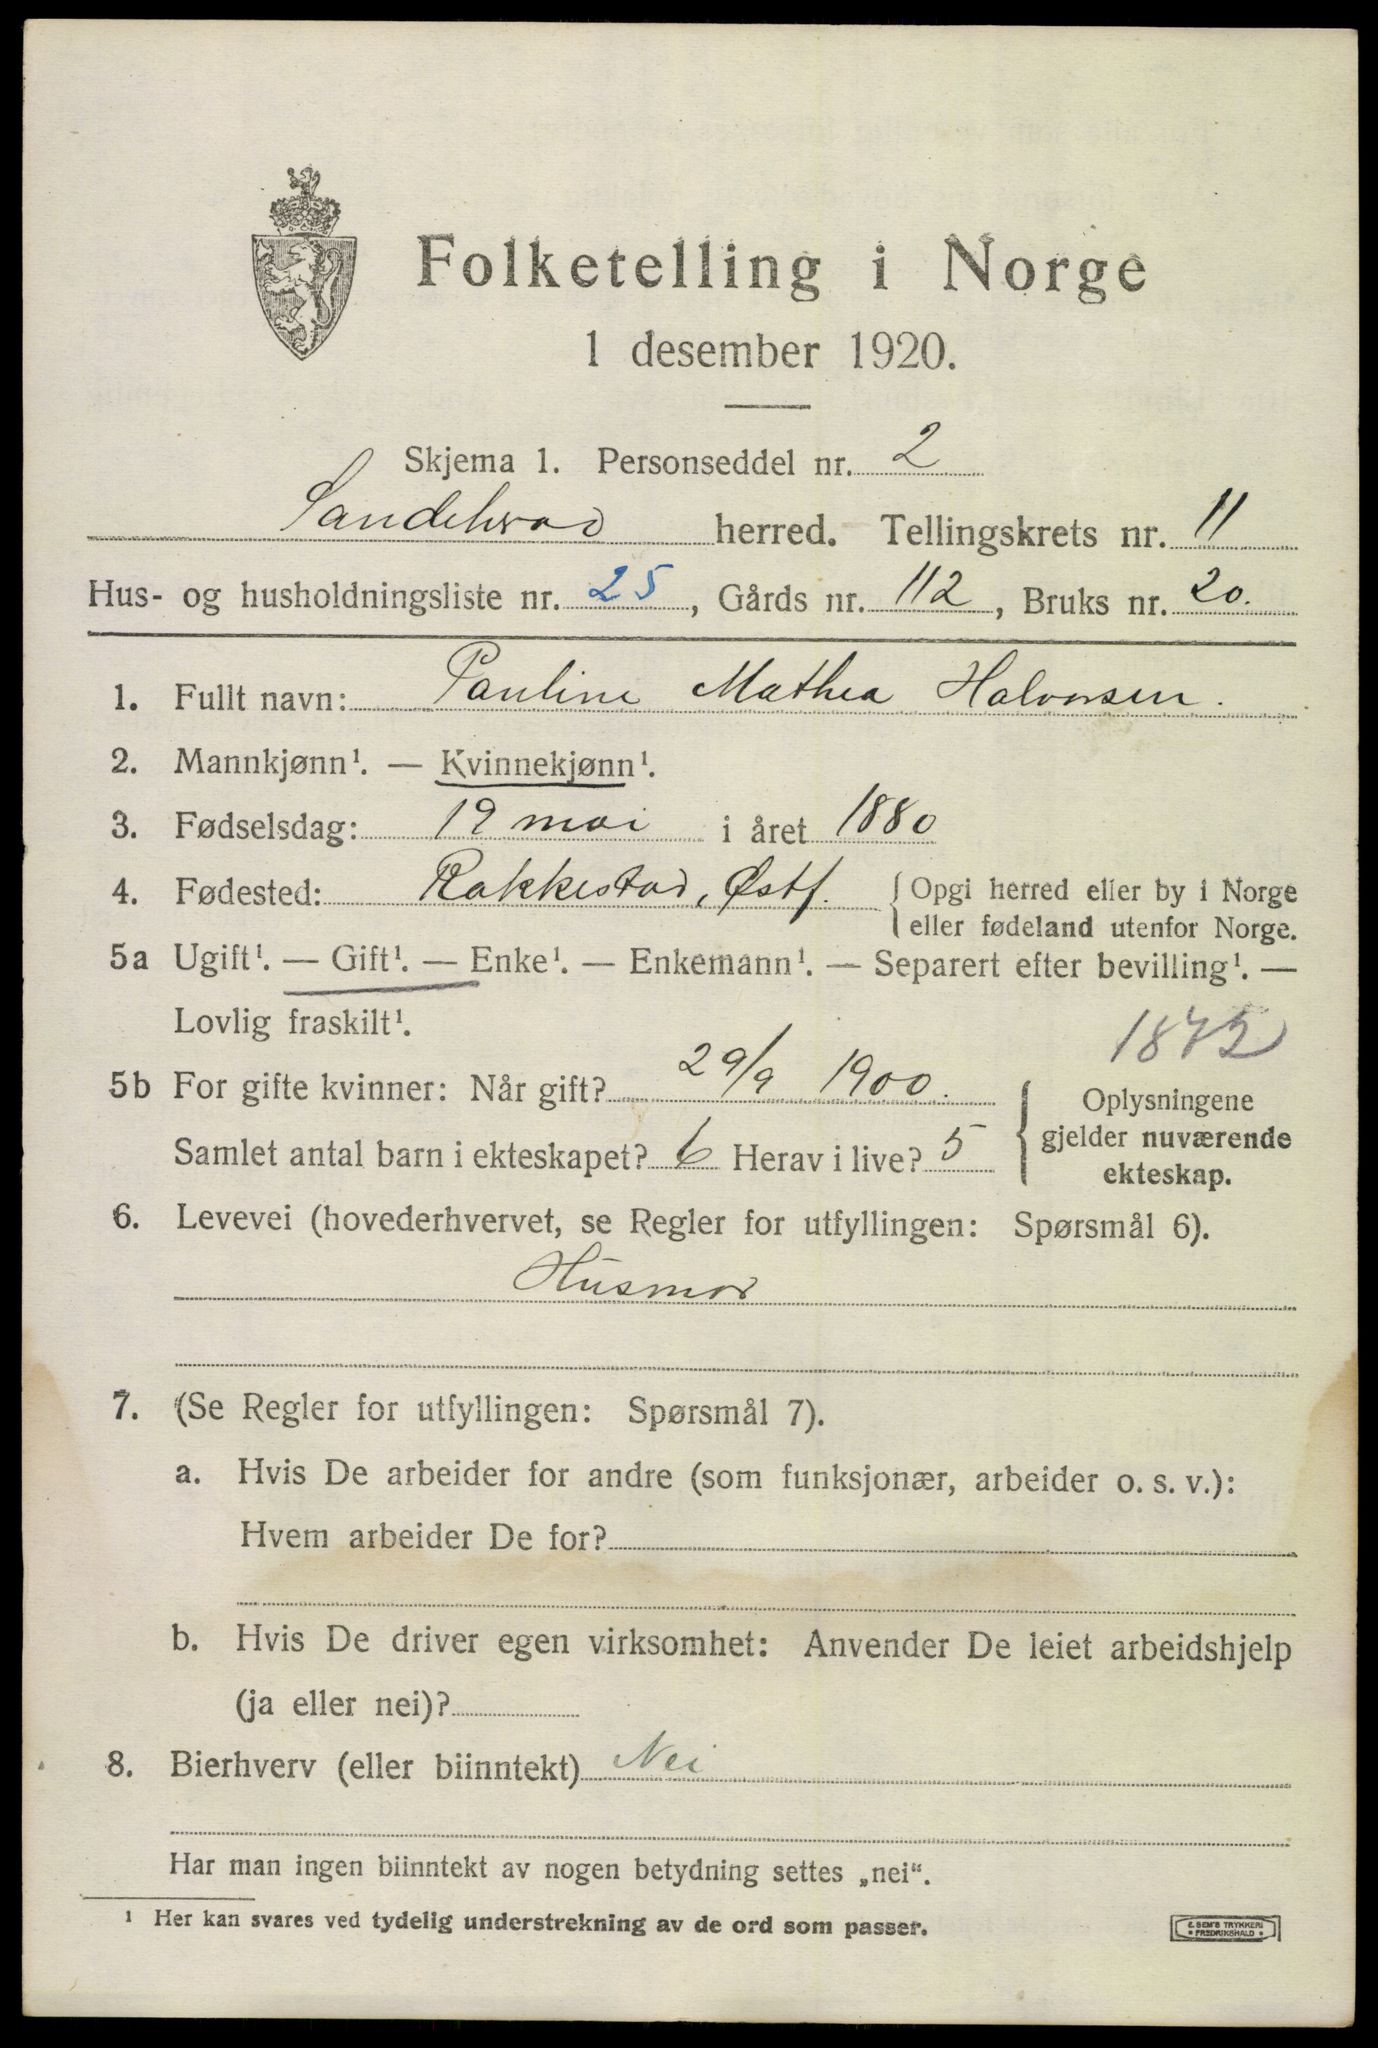 Folketelling i Norge
1 desember 1920.
Skjema 1. Personseddel nr. 2
Sandehved herred. Tellingskrets nr. 11
Hus- og husholdningsliste nr. 25, Gårds nr. 112, Bruks nr. 20.
1. Fullt navn: Pauline Mathea Halvorsen.
2. Mannkjønn¹. — Kvinnekjønn¹.
3. Fødselsdag: 19 mai i året 1880
4. Fødested: Rakkestad, Østf. { Opgi herred eller by i Norge
eller fødeland utenfor Norge.
5a Ugift¹. — Gift¹. — Enke¹. — Enkemann¹. — Separert efter bevilling¹. —
Lovlig fraskilt¹.
1872
5b For gifte kvinner: Når gift? 29/9 1900.
Samlet antal barn i ekteskapet? 6 Herav i live? 5
Oplysningene
gjelder nuværende
ekteskap.
6. Levevei (hovederhvervet, se Regler for utfyllingen: Spørsmål 6).
Husmor
7. (Se Regler for utfyllingen: Spørsmål 7).
a. Hvis De arbeider for andre (som funksjonær, arbeider o. s. v.):
Hvem arbeider De for?
b. Hvis De driver egen virksomhet: Anvender De leiet arbeidshjelp
(ja eller nei)?
8. Bierhverv (eller biinntekt) Nei
Har man ingen biinntekt av nogen betydning settes „nei“.
¹ Her kan svares ved tydelig understrekning av de ord som passer.
E. SEM'S TRYKKERI
• FREDRIKSHALD •